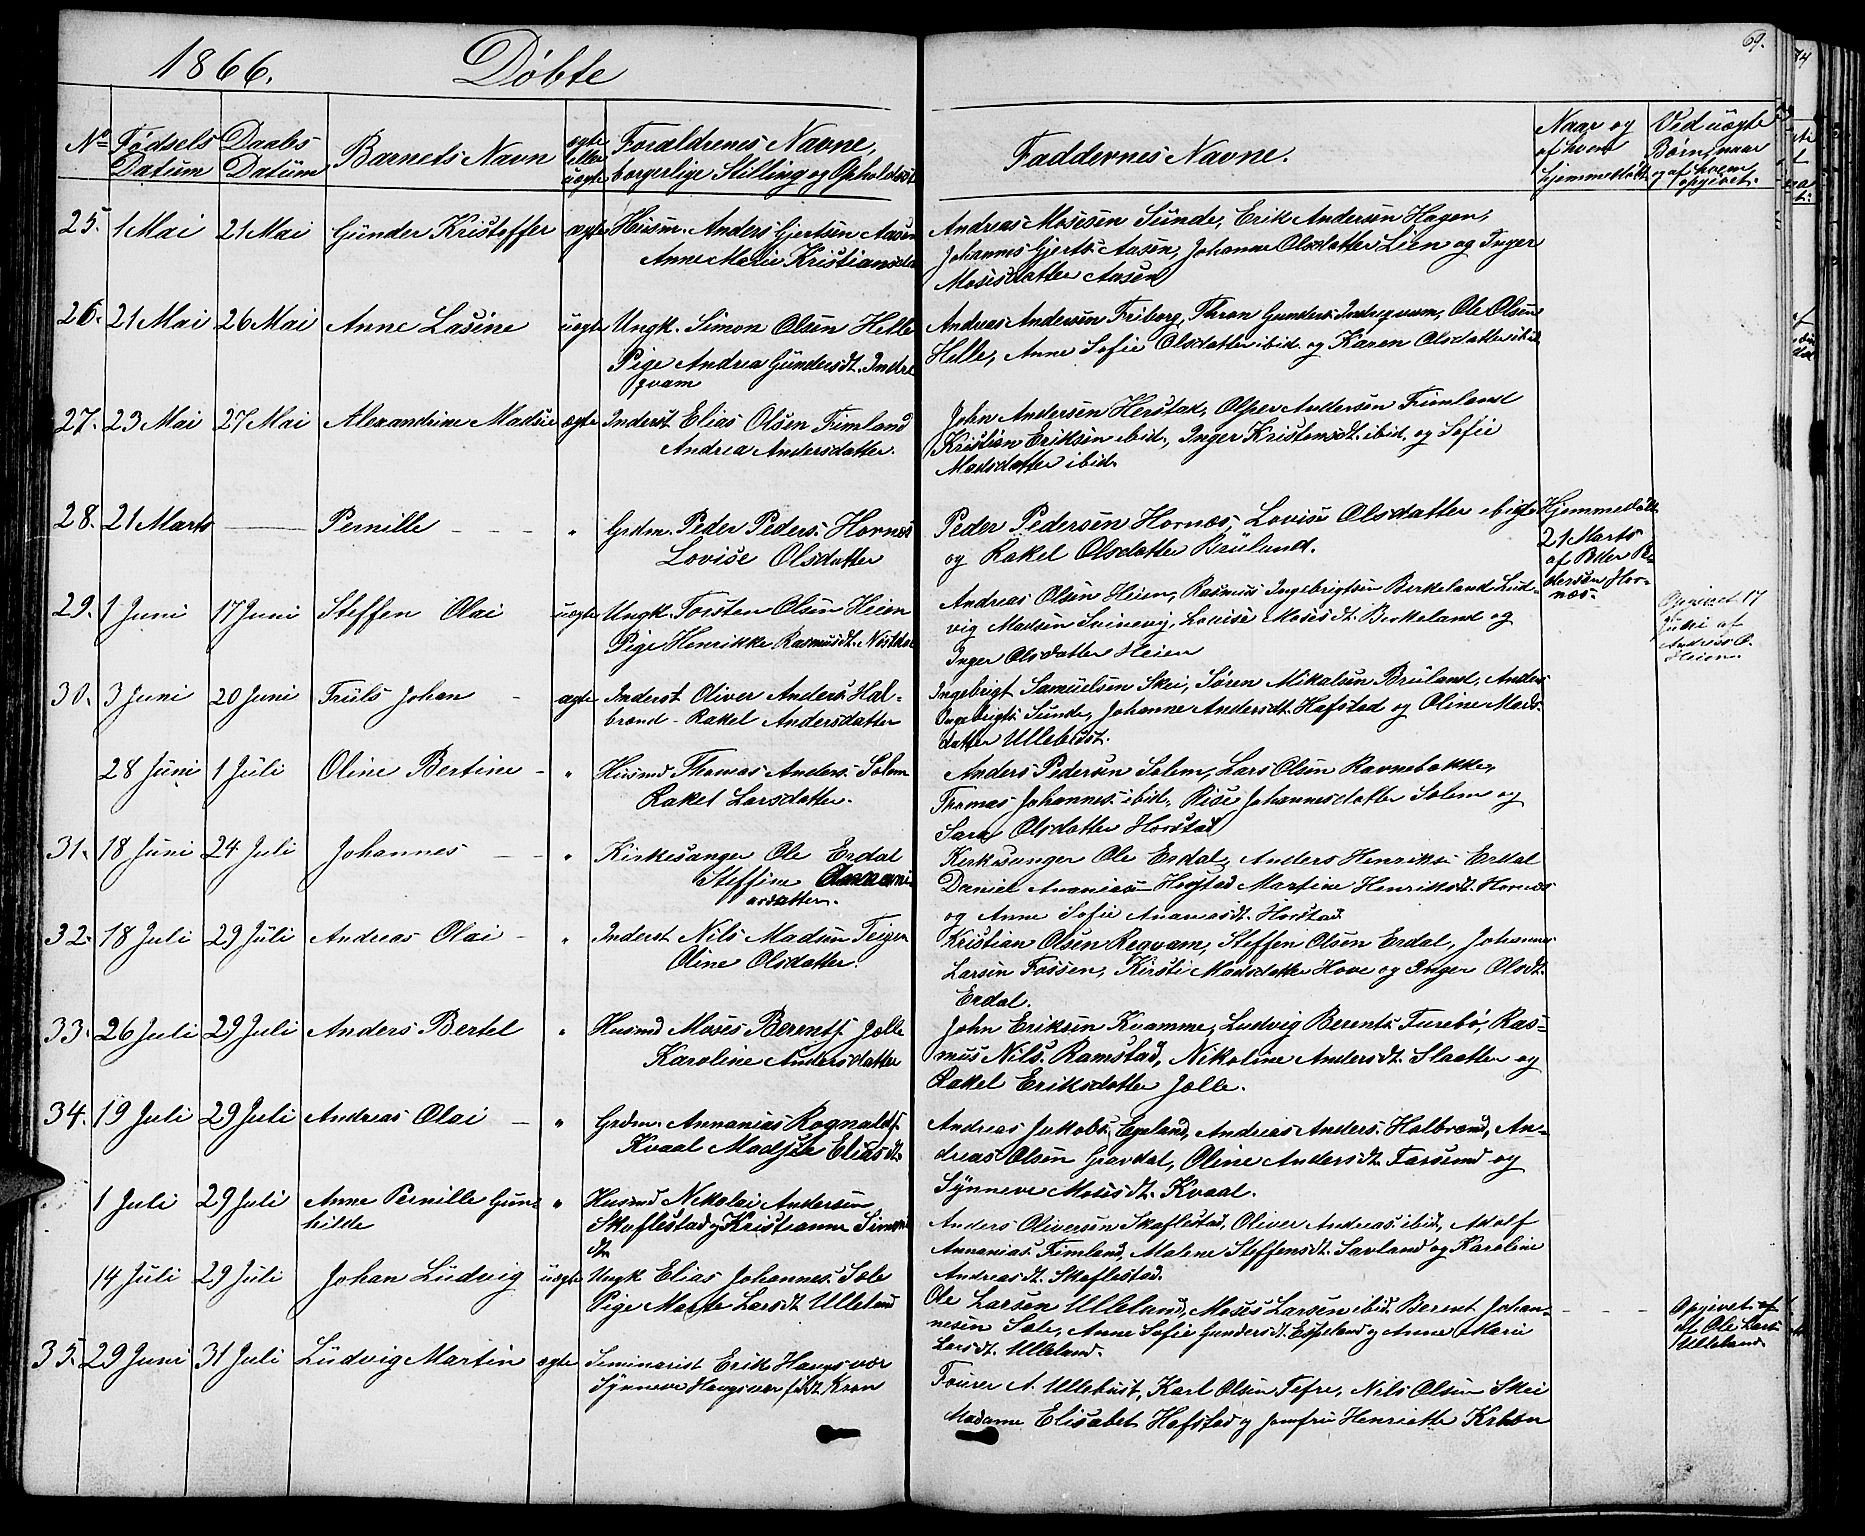 1866. Døbte
69.
No Fødsels Datum Daabs Datum Barnets Navn ægte eller uægte Forældrenes Navne, borgerlige Stilling og Opholdsst Faddernes Navne. Naar og af hvem hjemmedøbt Ved uægte Børn, naar og af hvem opgivet.
25. 1 Mai 21 Mai Günder Kristoffer ægte Husm. Anders Gjertsen Aasen
Anne Marie Kristiansdt
Andreas Mosesen Sunde, Erik Andersen Hagen,
Johannes Gjerts. Aasen, Johanne Olsdatter Lien og Inger
Mosesdatter Aasen
26. 21 Mai 26 Mai Anne Lasine uægte Ungk. Simon Olsen Helle
Pige Andrea Gundersdt. Indre
qvam
Andreas Andersen Friborg, Thron Gunders. Indreqvam, Ole Olsen
Helle, Anne Sofie Olsdatter ibid. og Karen Olsdatter ibid
27. 23 Mai 27 Mai Alexandrine Madsie ægte Inderst Elias Olsen Fimland
Andrea Andersdatter.
John Andersen Herstad, Andersen Fimland
Kristian Eriksen ibid., Inger Kristensdt. ibid. og Sofie
Madsdatter ibid.
28. 21 Marts — Pernille - - - " Grdm. Peder Peders. Hornes
Lovise Olsdatter
Peder Pedersen Hornæs, Lovise Olsdatter
og Rakel Olsdatter Bruland.
Hjemmedøbt
21 Marts
af Peder Pe-
dersen Hor-
næs.
29. 1 Juni 17 Juni Steffen Olai uægte Ungk. Torsten Olsen Heien
Pige Henrikke Rasmusdt.
Andreas Olsen Heien, Rasmus Ingebrigtsen Berkeland Lud-
vig Madsen Svinevig, Lovise Mosesdt. Berkeland og
Inger Olsdatter Heien
Opgivet 17
Juni af
Andreas O.
Heien
30. 3 Juni 20 Juni Truls Johan - ægte Inderst Oliver Anders. Hal-
brend - Rakel Andersdatter
Ingebrigt Samuelsen Skei, Søren Mikalsen Bruland, Anders
Ingebrigts. Sunde, Johanne Andersdt. Hafstad og Oline Mads-
datter Ullebust.
28 Juni 1 Juli Oline Bertine - " Husmd Thomas Anders. Solem
Rakel Larsdatter.
Anders Pedersen Solem, Lars Olsen Ravnebakke,
Thomas Johannes. ibid, Johannesdatter Solem og
Sara Olsdatter Horstad
31. 18 Juni 24 Juli Johannes — " Kirkesanger Ole Erdal
Steffine Anani-
asdatter.
Kirkesanger Ole Erdal, Anders Henriks. Erdal
Daniel Ananias. Horstad Martine Henriksdt. Hornæs
og Anne Sofie Ananiasdt. Horstad
32. 18 Juli 29 Juli Andreas Olai - " Inderst Nils Madsen Teigen
Oline Olsdatter.
Kristian Olsen Reqvam, Steffen Olsen Erdal, Johannes
Larsen Fossen, Kirsti Madsdatter Hove og Inger Olsdt.
Erdal.
33. 26 Juli 29 Juli Anders Bertel " Husmd Moses Berents. Jølle
Karoline Andersdatter
John Eriksen Kvamme, Ludvig Berents. Furebø, Ras-
mus Nils. Ramstad, Nikoline Andersdt. Slaatten og
Rakel Eriksdatter Jølle.
34. 19 Juli 29 Juli Andreas Olai — " Grdm. Annanias Rognalds.
Kvaal Madsie Eliasdt.
Andreas Jakobs. Egeland, Andreas Anders. Halbrend, An-
dreas Olsen Gravdal, Oline Andersdt. Farsund og
Synneve Mosesdt. Kvaal.
1 Juli 29 Juli Anne Pernille Gun-
hilde " Husmd Nikolai Andersen
Skaflestad og Kristianne Simons
dt.
Anders Oliversen Skaflestad, Oliver Andreas. ibid, Adolf
Annanias. Fimland, Malene Steffensdt. Savland og Karoline
Andreasdt. Skaflestad.
14 Juli 29 Juli Johan Ludvig uægte Ungk Elias Johannes. Sæle
Pige Marte Larsdt Ulleland
Ole Larsen Ulleland, Moses Larsen ibid. Berent Johan-
nesen Sæle, Anne Sofie Gundersdt. Espeland og Anne Marie
Larsdt. Ulleland.
Opgivet
af Ole Lars.
Ulleland
35. 29 Juni 31 Juli Ludvig Martin ægte Seminarist Erik Haugsvær
Synneve Haugsvær født Kron
Fourer A. Ullebust, Karl Olsen Tefre, Nils Olsen Skei
Madame Elisabet Hafstad og Jomfru Henriette Krohn